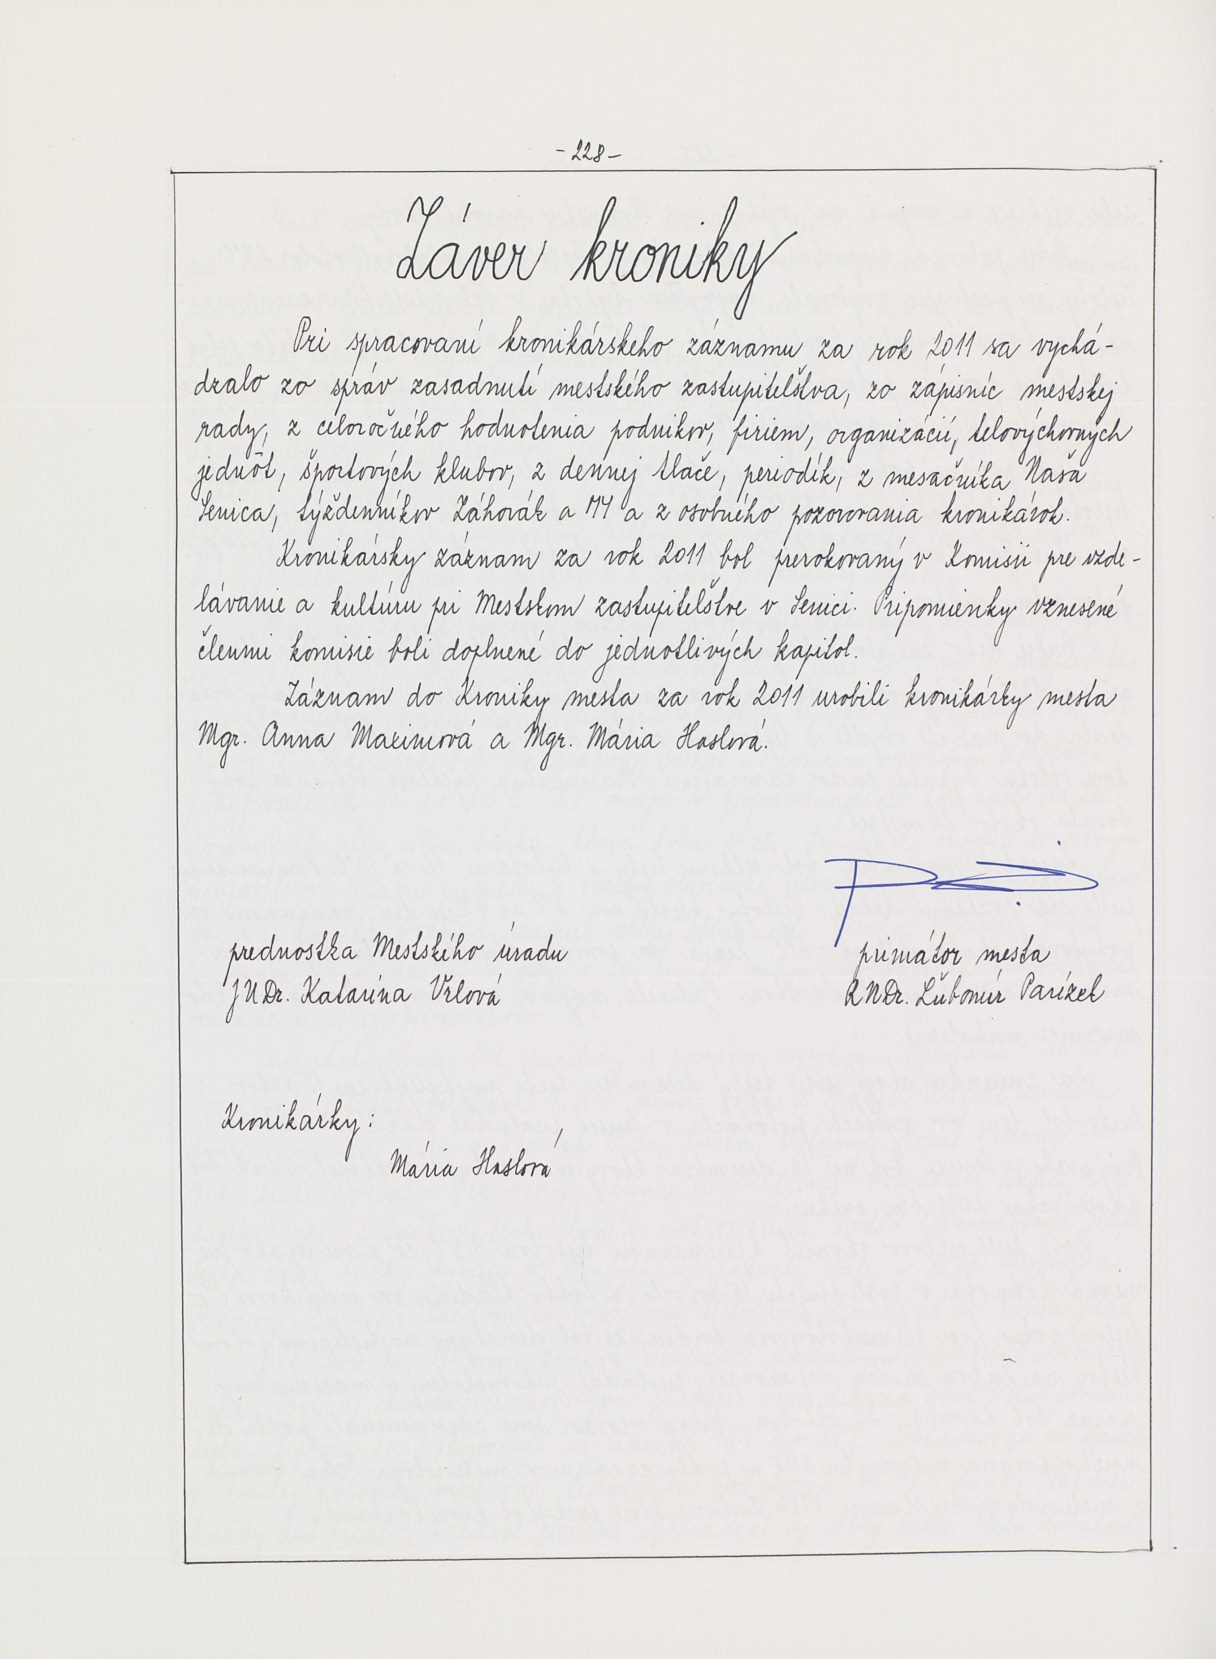 -228-
Záver kroniky
Pri spracovaní kronikárskeho záznamu za rok 2011 sa vychá-
dzalo zo správ zasadnutí mestského zastupiteľstva, zo zápisníc mestskej
rady, z celoročného hodnotenia podnikov, firiem, organizácií, telovýchovných
jednôt, športových klubov, z dennej tlače, periodík, z mesačníka Naša
Senica, týždenníkov Záhorák a MY a z osobného pozorovania kronikárok.
Kronikársky záznam za rok 2011 bol prerokovaný v Komisii pre vzde-
lávanie a kultúru pri Mestskom zastupiteľstve v Senici. Pripomienky vznesené
členmi komisie boli doplnené do jednotlivých kapitol.
Záznam do Kroniky mesta za rok 2011 urobili kronikárky mesta
Mgr. Anna Maximová a Mgr. Mária Haslová.
prednostka Mestského úradu
JUDr. Katarína Vrlová
primátor mesta
RNDr. Ľubomír Parízek
Kronikárky:
Mária Haslová